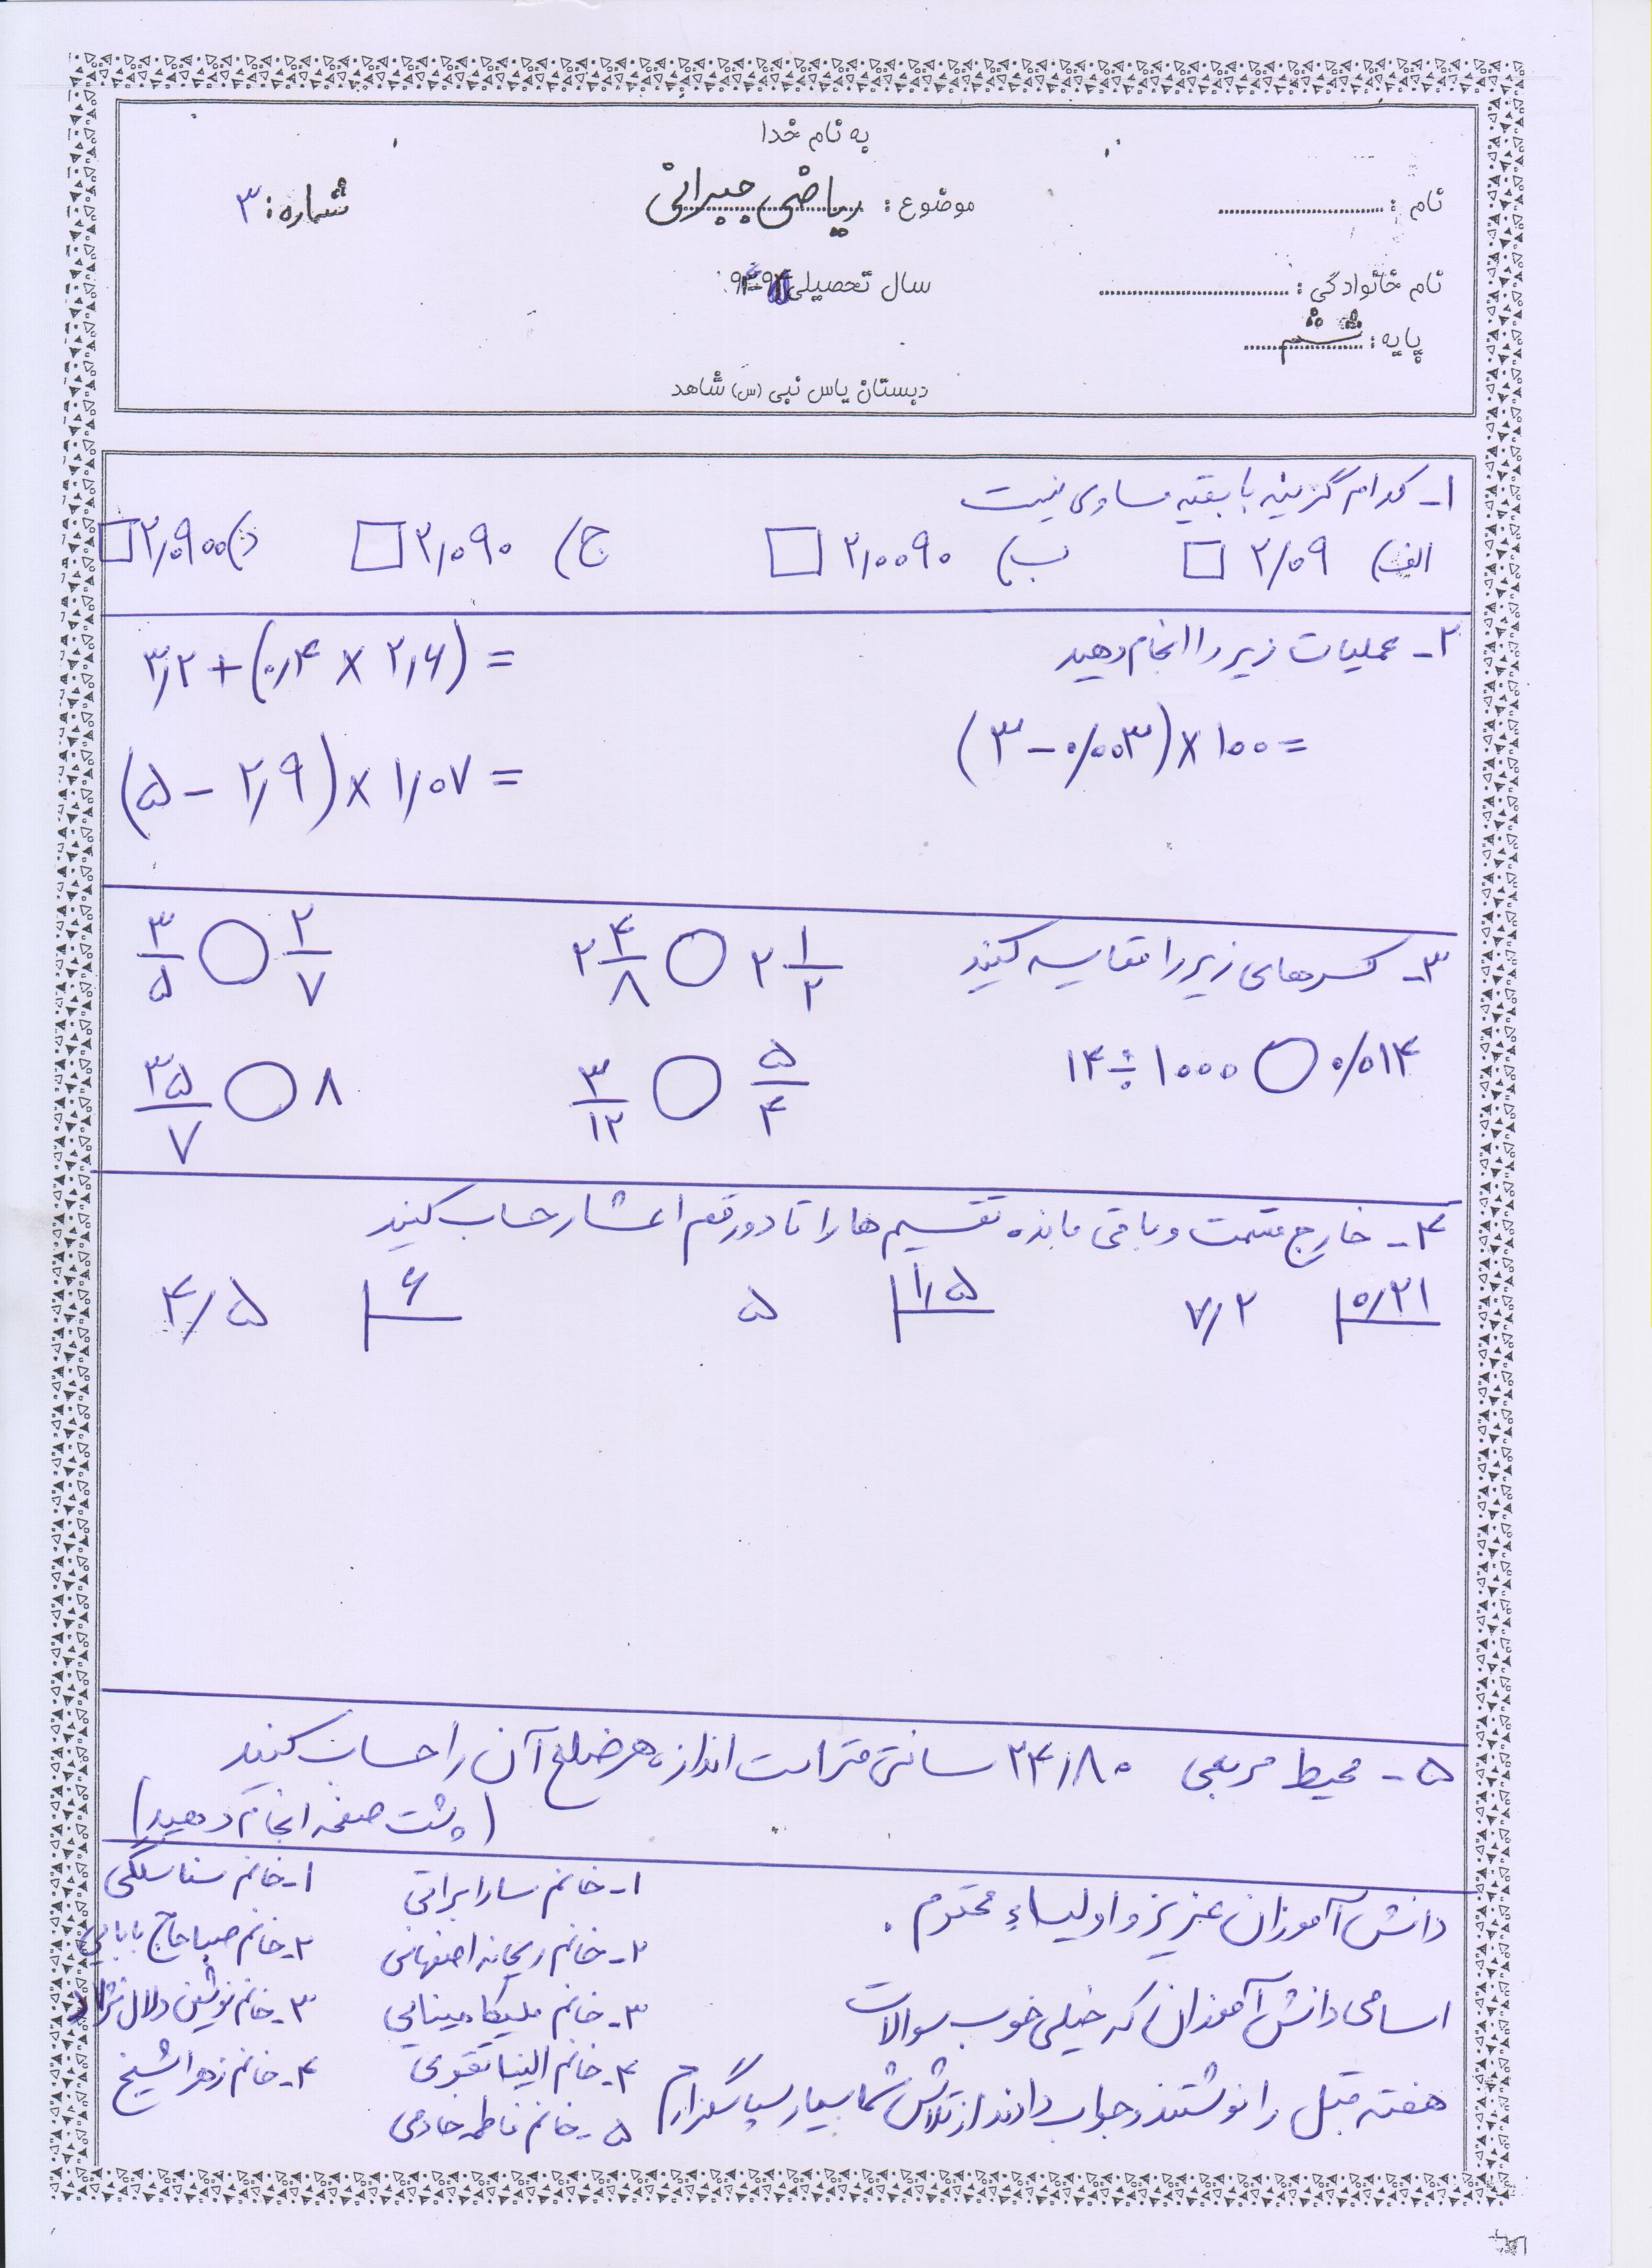 به نام خدا
نام : ........................ موضوع : ریاضی جبرانی شماره : ۳
نام خانوادگی : ........................ سال تحصیلی
پایه : ششم
دبستان یاس نبی (س) شاهد
۱- کدام گزینه با بقیه مساوی نیست
الف) ۲/۰۹ □ ب) ۲/۰۰۹۰ □ ج) ۲/۰۹۰ □ د) ۲/۰۹۰۰ □
۲- عملیات زیر را انجام دهید
۳/۲ + (۰/۴ × ۲/۶) =
(۳ - ۰/۰۰۳) × ۱۰۰ =
(۵ - ۲/۹) × ۱/۰۷ =
۳- کسرهای زیر را مقایسه کنید
۲ ۴/۸ ○ ۲ ۱/۲
۳/۵ ○ ۲/۷
۱۴ ÷ ۱۰۰۰ ○ ۰/۰۱۴
۳/۱۲ ○ ۵/۴
۳۵/۷ ○ ۸
۴- خارج قسمت و باقی مانده تقسیم ها را تا دو رقم اعشار حساب کنید
۷/۲ | ۰/۲۱
۵ | ۱/۵
۴/۵ | ۶
۵- محیط مربعی ۲۴/۸۰ سانتی متر است اندازه هر ضلع آن را حساب کنید
(پشت صفحه انجام دهید)
دانش آموزان عزیز و اولیاء محترم .
اسامی دانش آموزان که خیلی خوب سوالات
هفته قبل را نوشتند و جواب دادند از تلاش شما بسیار سپاسگزارم
۱- خانم سارا براتی
۲- خانم ریحانه اصفهانی
۳- خانم ملیکا مینایی
۴- خانم الینا تقوی
۵- خانم فاطمه خادمی
۱- خانم سنا سلگی
۲- خانم صبا حاج بابایی
۳- خانم نوشین دلال نژاد
۴- خانم زهرا شیخ